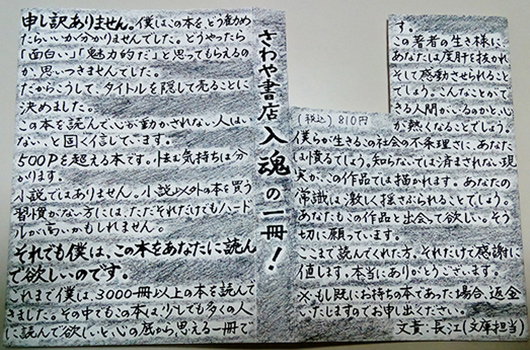 申し訳ありません。僕はこの本を、どう勧め
たらいいか分かりませんでした。どうやったら
「面白い」「魅力的だ」と思ってもらえるの
か、思いつきませんでした。
だからこうして、タイトルを隠して売ることに
決めました。
この本を読んで心が動かされない人はい
ない、と固く信じています。
500Pを超える本です。怯む気持ちは分
かります。
小説ではありません。小説以外の本を買う
習慣がない方には、ただそれだけでもハード
ルが高いかもしれません。
それでも僕は、この本をあなたに読ん
で欲しいのです。
これまで僕は、3000冊以上の本を読んで
きました。その中でもこの本は、少しでも多くの人
に読んで欲しいと、心の底から思える一冊で
さわや書店 入魂の一冊!
す。
この著者の生き様に
あなたは度肝を抜かれ
そして感動させられること
でしょう。こんなことがで
きる人間がいるのかと、心
が熱くなることでしょう。
(税込) 810円
僕らが生きるこの社会の不条理さに、あなた
は憤るでしょう。知らないでは済まされない現
実が、この作品では描かれます。あなたの
常識は激しく揺さぶられることでしょう。
あなたもこの作品と出会って欲しい。そう
切に願っています。
ここまで読んでくれた方、それだけで感謝に
値します。本当にありがとうございます。
※もし既にお持ちの本であった場合、返金
いたしますのでお申し出ください。
文責:長江(文庫担当)